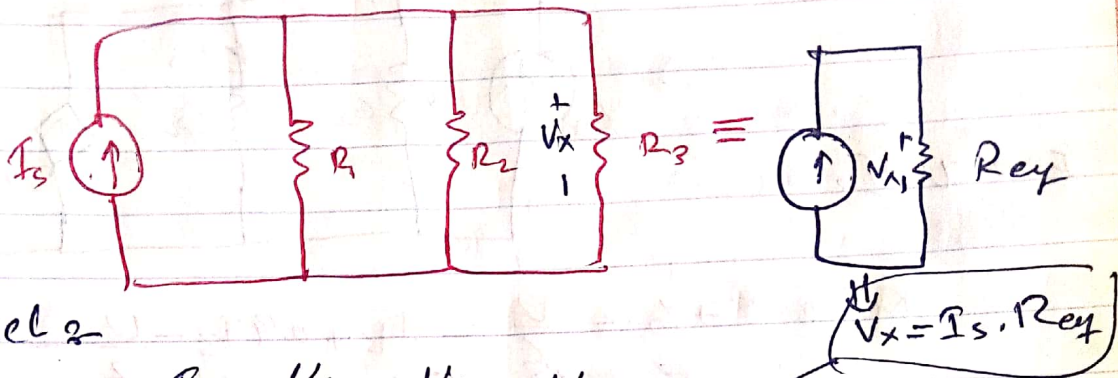 Is R₁ R₂ + Vx - R₃ ≡ + Vx - Req
Vx = Is . Req